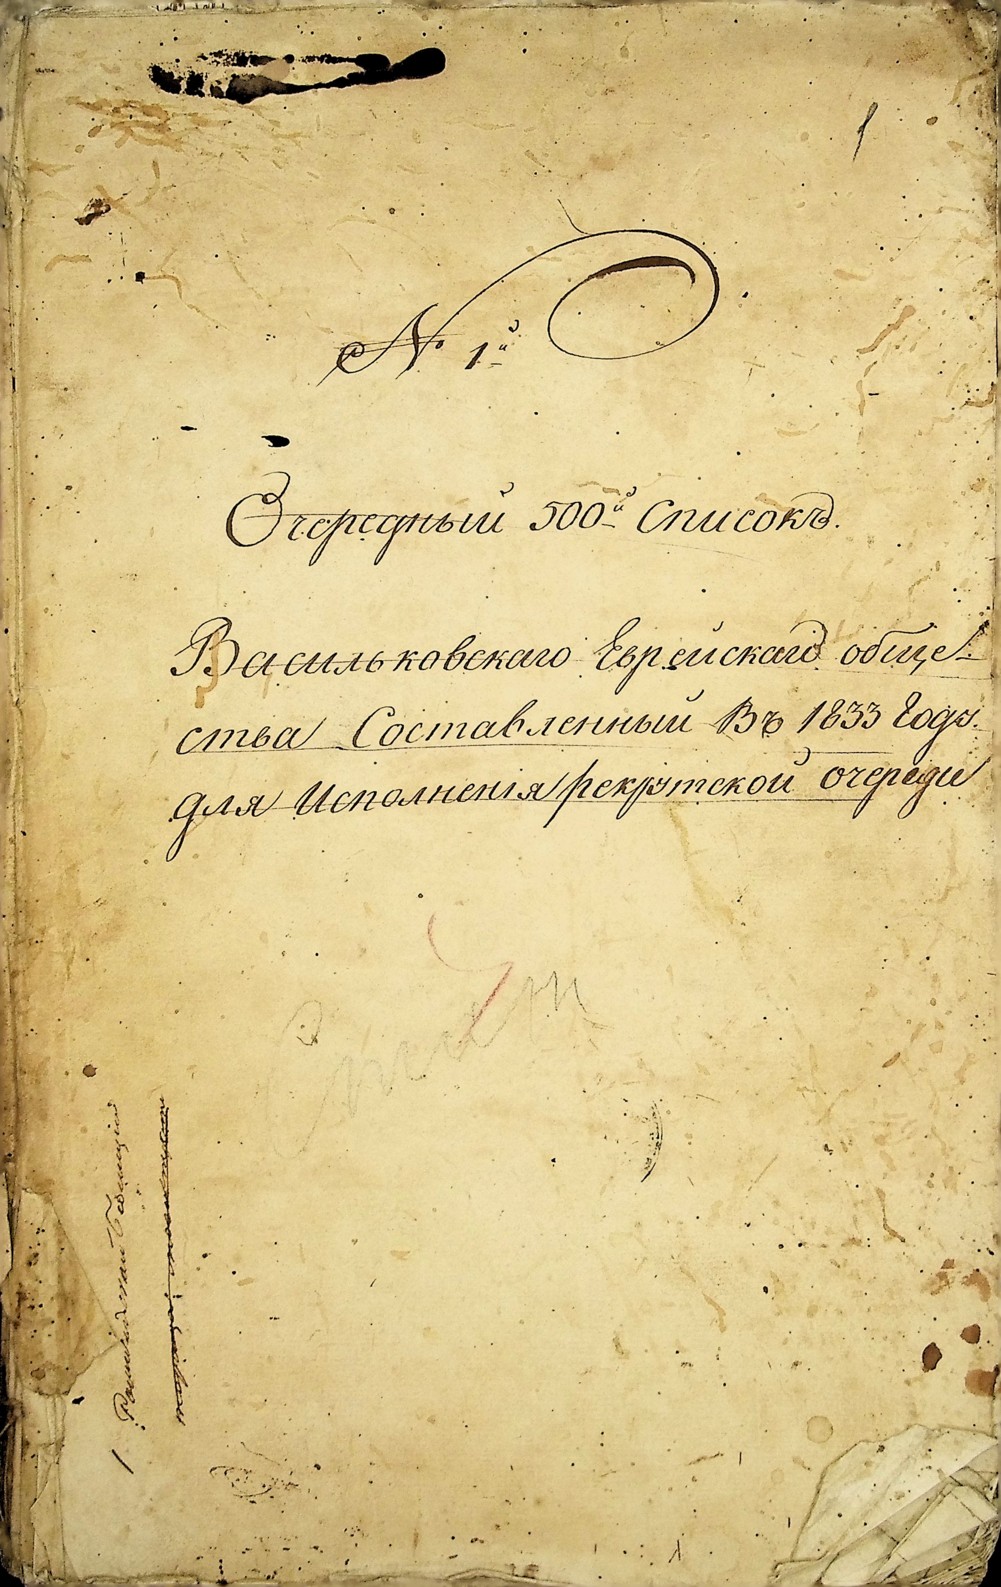 1
№ 1й
Очередный 500й Списокъ.
Васильковскаго Еврейскаго обще-
ства Составленный Въ 1833 Году.
для Исполненія рекрутской очереди